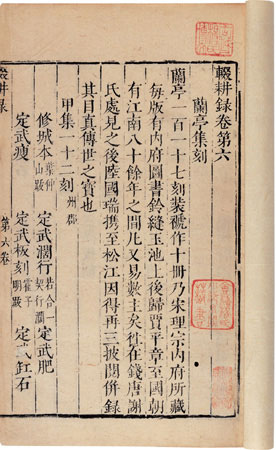 輟耕錄卷第六
蘭亭集刻
蘭亭一百一十七刻裝褫作十冊乃宋理宗內府所藏
每版有內府圖書鈐縫玉池上後歸賈平章至國朝
有江南八十餘年之間凡又易數主矣往在錢唐謝
氏處見之後陸國瑞攜至松江因得再三披閱併錄
其目真傳世之寶也
甲集一十二刻 州郡
修城本 葉仲山跋 定武瀾行 若合一契行瀾 定武肥
定武瘦 定武板刻 霍子明跋 定武缸石
輟耕錄 第六卷